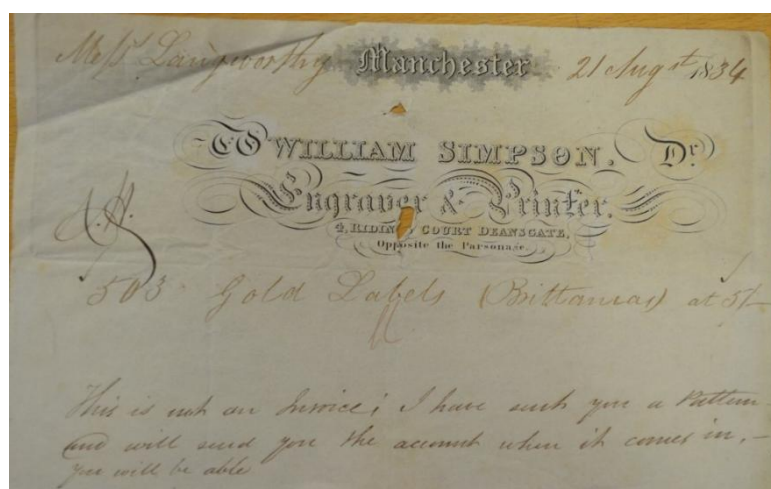 Messrs Langworthy Manchester 21 Augst 1834
To WILLIAM SIMPSON. Dr.
Engraver & Printer.
4, RIDING COURT DEANSGATE,
Opposite the Parsonage.
503 Gold Labels (Brittanias) at 5/-
This is not an Invoice; I have sent you a Pattern
and will send you the account when it comes in, –
you will be able